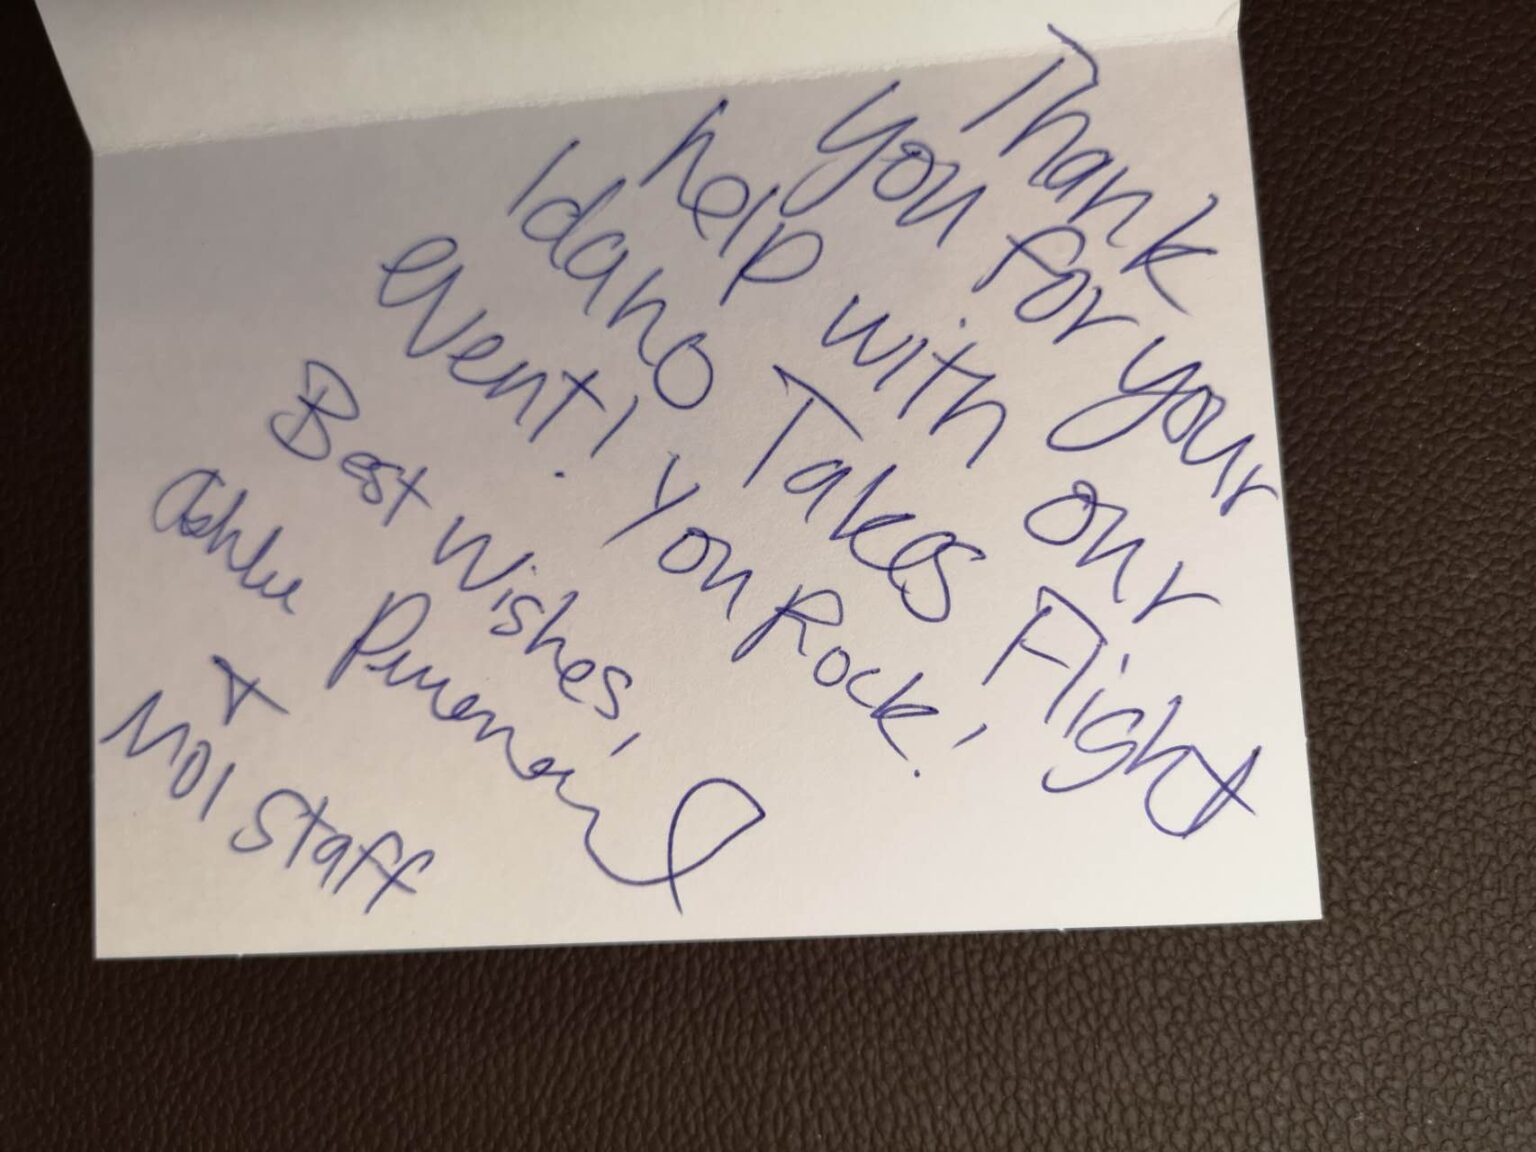 Thank
you for your
help with our
Idaho Takes Flight
event! You Rock!
Best Wishes,
+
MOI Staff